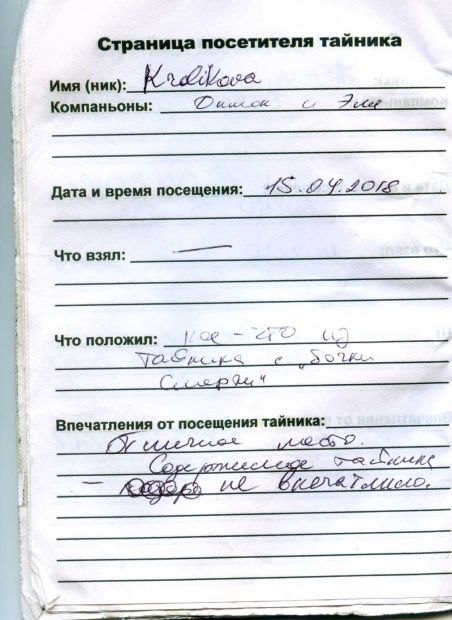 Страница посетителя тайника
Имя (ник): Krolikova
Компаньоны: Димок и Эля
Дата и время посещения: 15.04.2018
Что взял: —
Что положил: кое-что из
тайника с „Бочки
Смерти“
Впечатления от посещения тайника:
Отличное место.
Содержимое тайника
— не впечатлило.